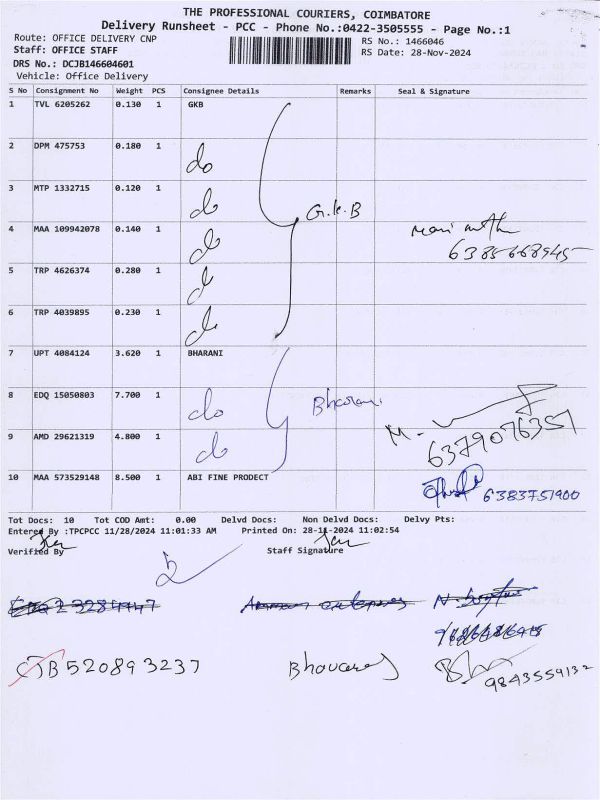 THE PROFESSIONAL COURIERS, COIMBATORE
Delivery Runsheet - PCC - Phone No.:0422-3505555 - Page No.:1
Route: OFFICE DELIVERY CNP RS No.: 1466046
Staff: OFFICE STAFF RS Date: 28-Nov-2024
DRS No.: DCJB146604601
Vehicle: Office Delivery
S No Consignment No Weight PCS Consignee Details Remarks Seal & Signature
1 TVL 6205262 0.130 1 GKB
2 DPM 475753 0.180 1 do
3 MTP 1332715 0.120 1 do
G.K.B
4 MAA 109942078 0.140 1 do
6385668945
5 TRP 4626374 0.280 1 do
6 TRP 4039895 0.230 1 do
7 UPT 4084124 3.620 1 BHARANI
8 EDQ 15050803 7.700 1 do Bharani
9 AMD 29621319 4.800 1 do M. 6379076351
10 MAA 573529148 8.500 1 ABI FINE PRODECT 6383751900
Tot Docs: 10 Tot COD Amt: 0.00 Delvd Docs: Non Delvd Docs: Delvy Pts:
Entered By :TPCPCC 11/28/2024 11:01:33 AM Printed On: 28-11-2024 11:02:54
Verified By Staff Signature
CJB520893237 9843559132